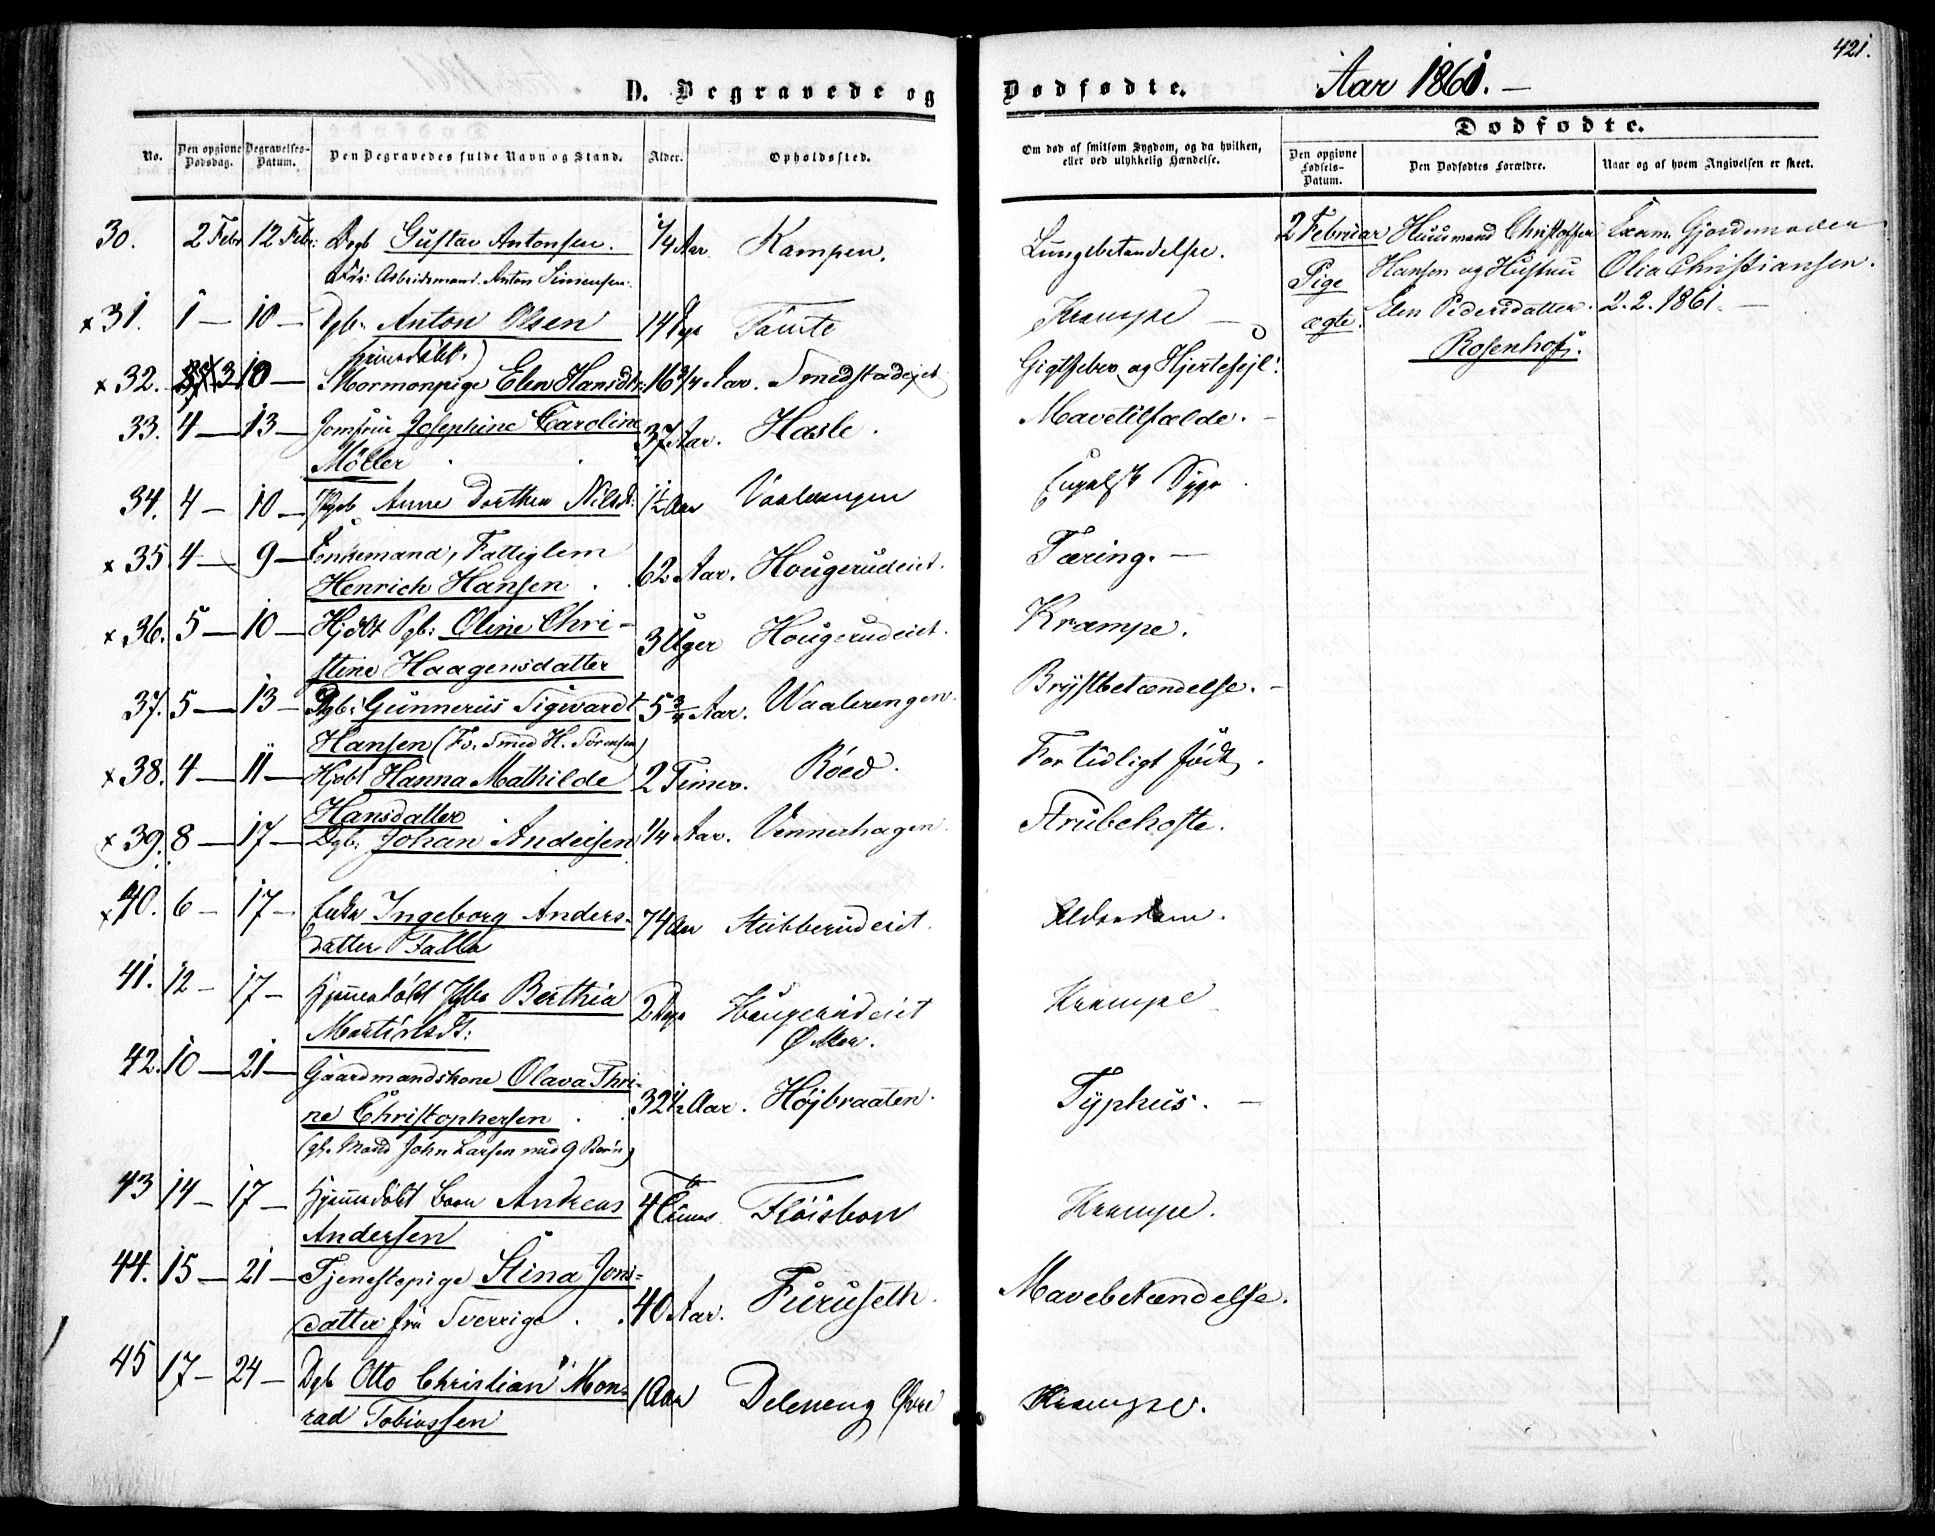 421.
D. Begravede og Dødfødte. Aar 1861. —
No. Den opgivne Dødsdag. Begravelses-Datum. Den Begravedes fulde Navn og Stand. Alder. Opholdssted.
Om død af smitsom Sygdom, og da hvilken, eller ved ulykkelig Hændelse.
Dødfødte.
Den opgivne Fødsels-Datum. Den Dødfødtes Forældre. Naar og af hvem Angivelsen er skeet.
30. 2 Febr 12 Febr: Dgb Gustav Antonsen. 1/4 Aar Kampen. Lungebetændelse.
Arbeidsmand Anton Simensen.
x 31. 1 — 10 — Dgb. Anton Olsen 14 Dge Krampe —
hjemedöbt.
x 32. 3 10 — Mormonpige Elen Hansdtr: 16 3/4 Aar. Smedstadejet Gigtfeber og Hjertefejl.
33. 4 — 13 — Jomfru Josephine Caroline 37 Aar. Hasle. Mavetilfælde. —
Möller
34. 4 — 10 — Pgb Anne Dorthea Nilsd: 1 1/2 Aar Vaalerengen Engelsk Syge.
x 35 4 — 9 — Enkemand, Fattiglem
Henrich Hansen. 62 Aar. Hougerudeiet. Tæring. —
x 36. 5 — 10 — Hjdbt Pgb: Oline Chri-
stine Haagensdatter 3 Uger Hougerudeiet. Krampe.
37. 5 — 13 — Dgb: Gunnerius Sigvardt 5 3/4 Aar. Waalerengen. Brystbetændelse. —
Hansen (Fv. Smed H. Sörensen)
x 38. 4 — 11 — Hjdbt Hanna Mathilde 2 Timer. Röed. For tidligt födt.
Hansdatter
x 39. 8 — 17 — Dgb: Johan Andersen 1/4 Aar. Vennerhagen. Strubehoste.
x 40. 6 — 17 — Enke Ingeborg Anders-
datter 74 Aar Stubberudeiet. Alderdom.
41. 12 — 17 — Hjemmedöbt Pgb Berthea
Martinsdt: 2 Dage Haugerudeiet Krampe
Ø. Aker.
42. 10 — 21 — Gaardmandskone Olava Thri-
ne Christophersen. 32 1/2 Aar. Höjbraaten. Typhus. —
(gf. Mand John Larsen med 9 Börn)
43 14 — 17 — Hjemmedöbt Barn Andreas 4 Timer Flöisbon Krampe.
Andersen
44. 15 — 21 — Tjenestepige Stina Jons-
datter fra Sverrige. 40 Aar. Furuseth. Mavebetændelse.
45 17 — 24 — Dgb Otto Christian Mon-
rad Tobiassen 1 Aar Deleneng Øvre Krampe.
2 Februar Huusmand Christoffer Exam. Gjordemoder
Pige Hansen og Hustru Olia Christiansen.
ægte. Elen Pedersdatter. 2.2.1861. —
Rosenhof.